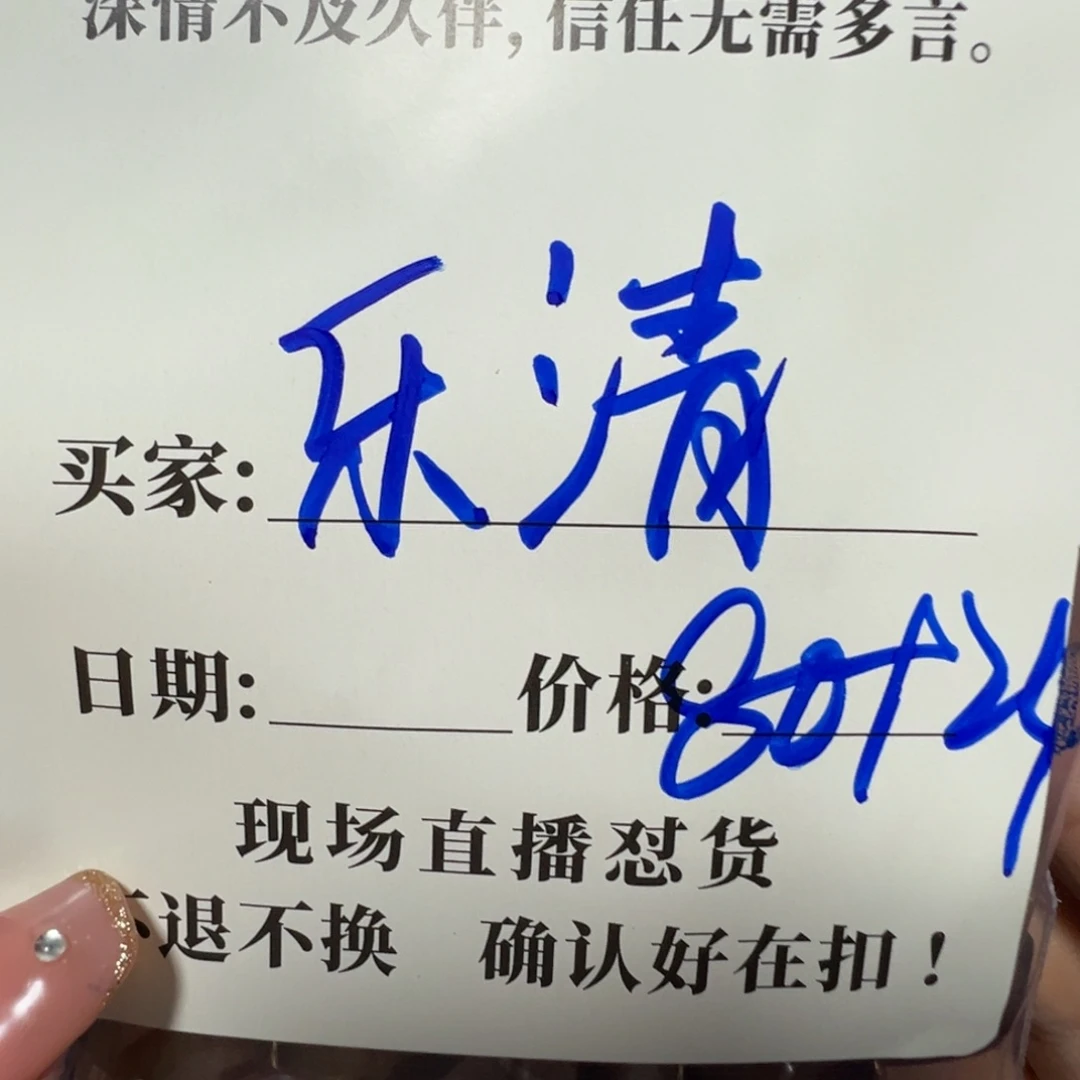 深情不及久伴，信任无需多言。
买家：乐清
日期：价格：80+24
现场直播怼货
不退不换 确认好在扣！